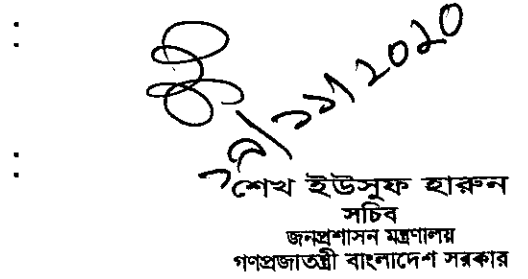 :
:
শেখ ইউসুফ হারুন
সচিব
জনপ্রশাসন মন্ত্রণালয়
গণপ্রজাতন্ত্রী বাংলাদেশ সরকার